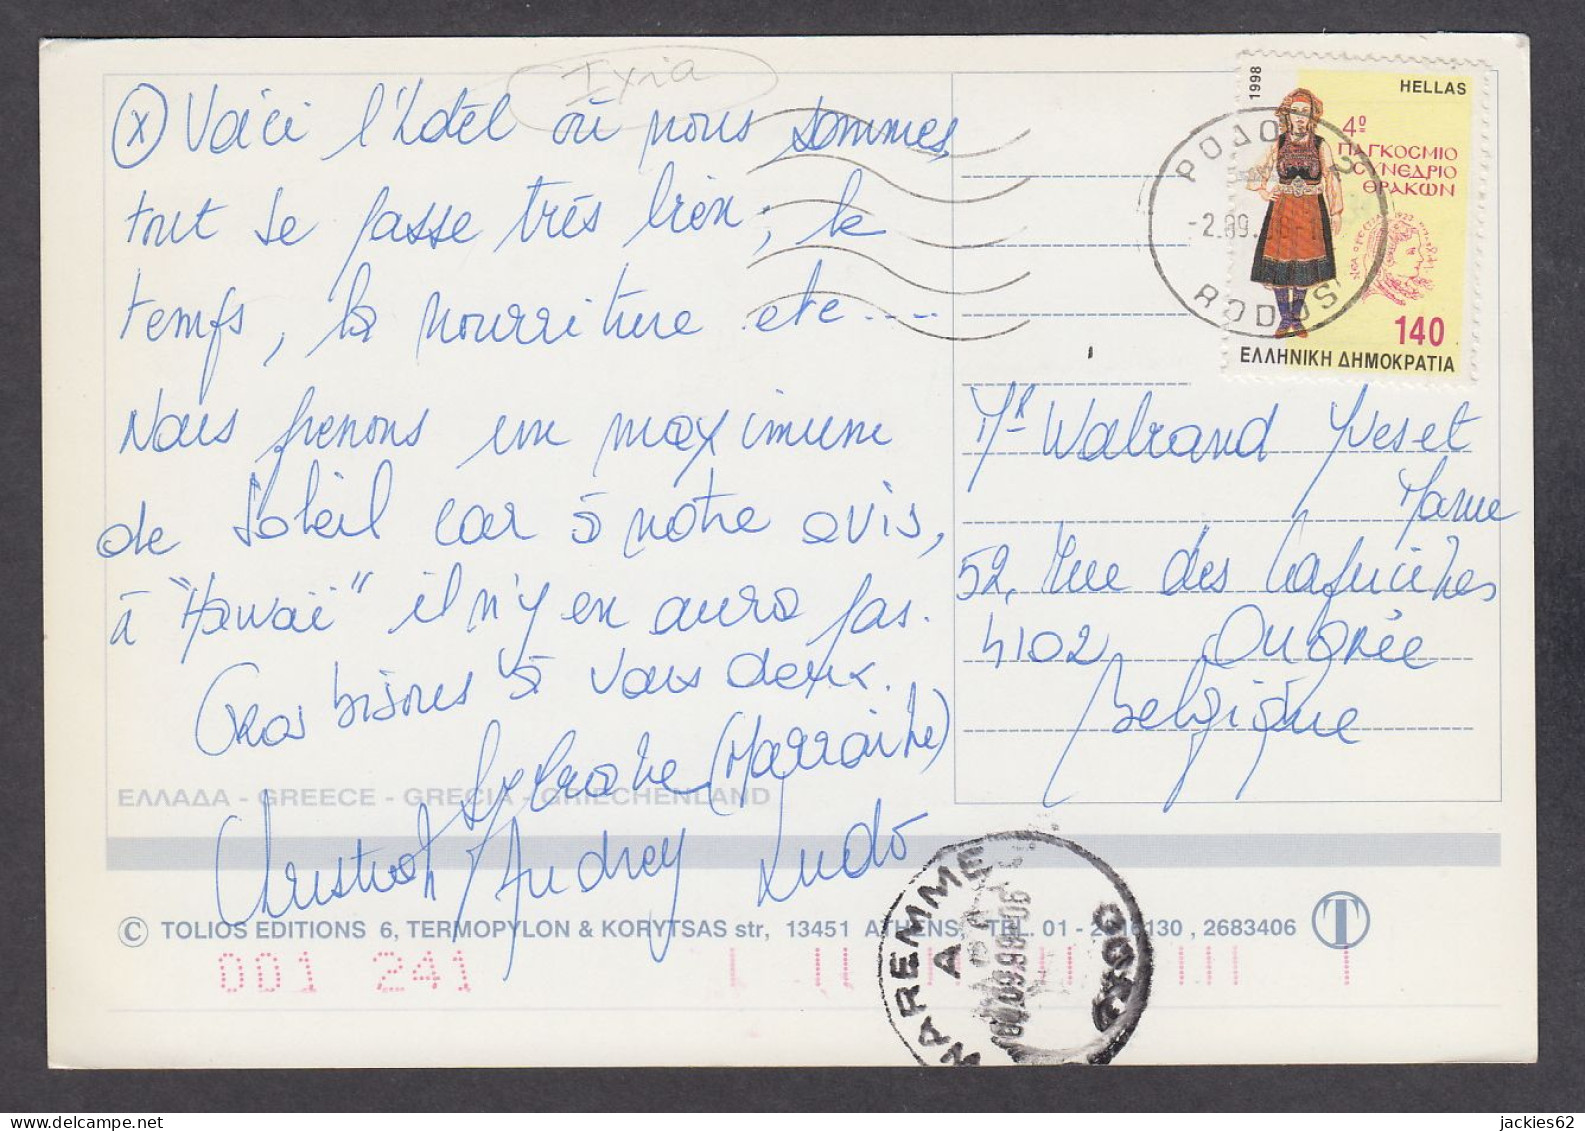 Ixia
(x) Voici l'hôtel où nous sommes
tout se passe très bien ; le
temps, la nourriture etc....
Nous prenons un maximum
de soleil car à notre avis,
à "Hawaï" il n'y en aura pas.
Gros bisous à vous deux.
(Marraine)
Christoph Audrey Ludo
Mr Walrand Yves et
52, Rue des Capucines
4102 Ougrée
Belgique
1998
HELLAS
4º
ΠΑΓΚΟΣΜΙΟ
ΣΥΝΕΔΡΙΟ
ΘΡΑΚΩΝ
140
ΕΛΛΗΝΙΚΗ ΔΗΜΟΚΡΑΤΙΑ
ΡΟΔΟΣ
-2.09.
RODOS
ΕΛΛΑΔΑ - GREECE - GRECIA - GRIECHENLAND
© TOLIOS EDITIONS 6, TERMOPYLON & KORYTSAS str, 13451 ATHENS, TEL. 01 - 2616130 , 2683406
T
001 241
WAREMME
A
jackies62